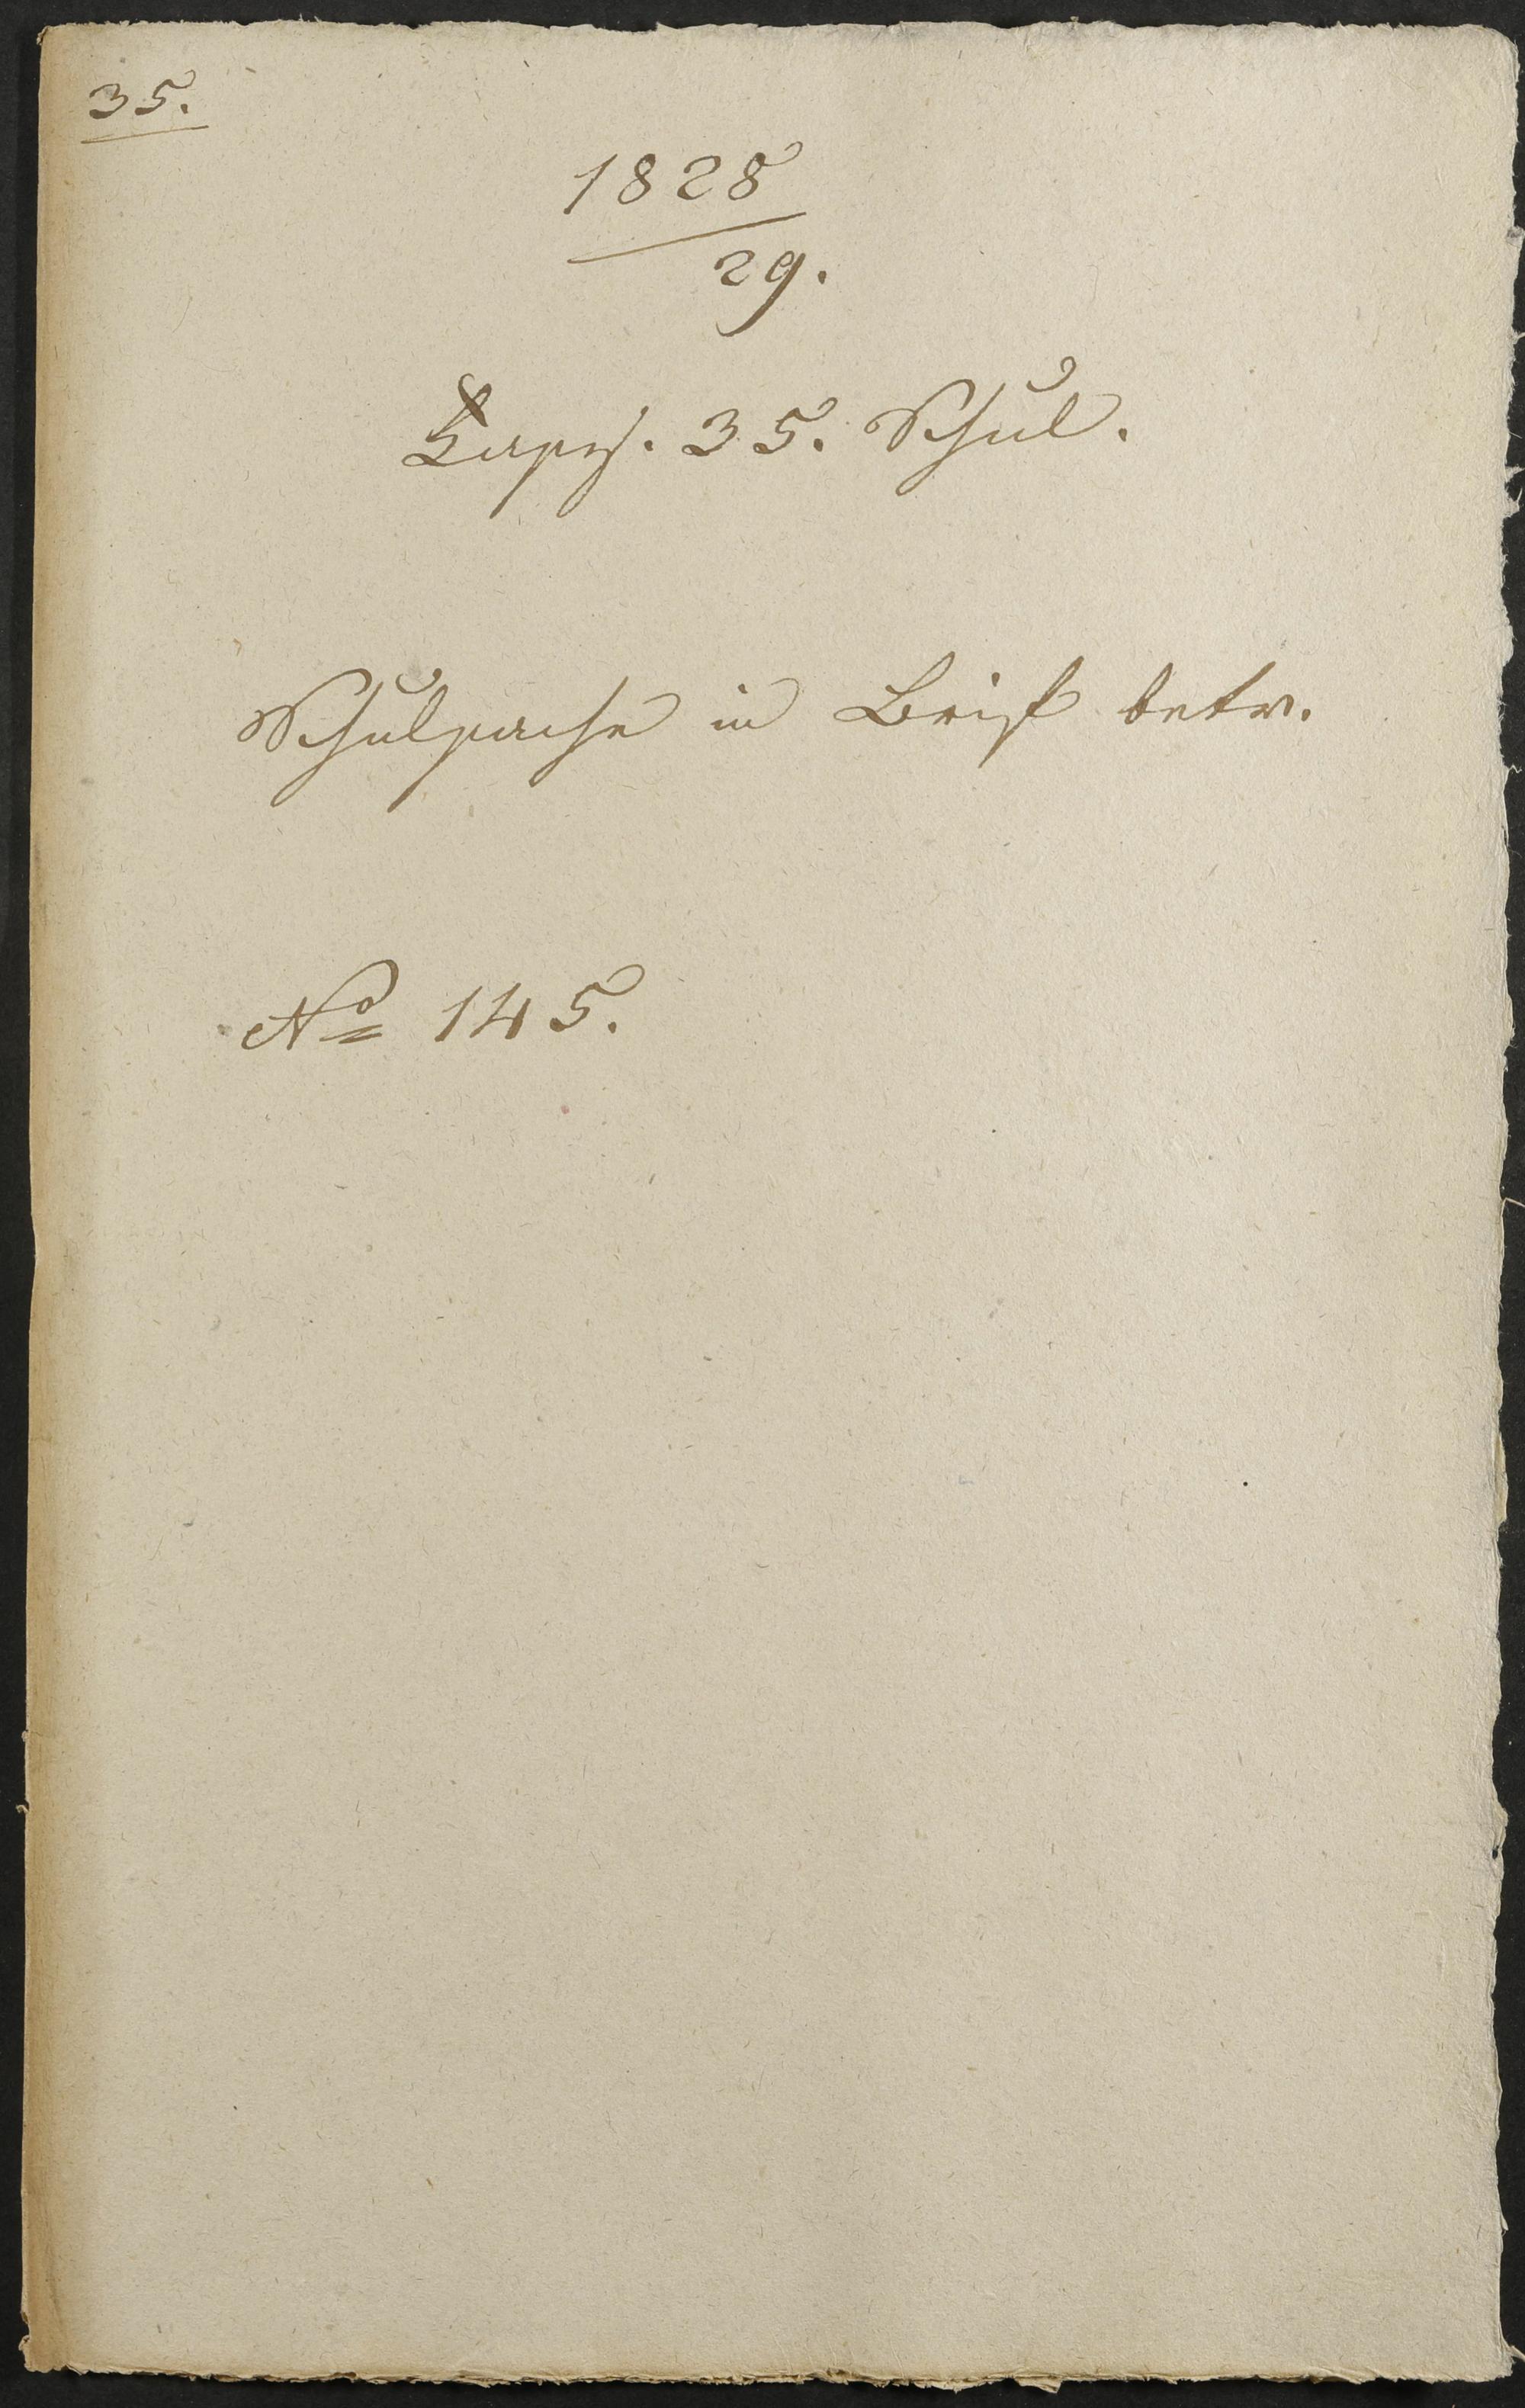 35.
1828
29.
Caps. 35. Schul.
Schulsache in Brisk betr.
No 145.